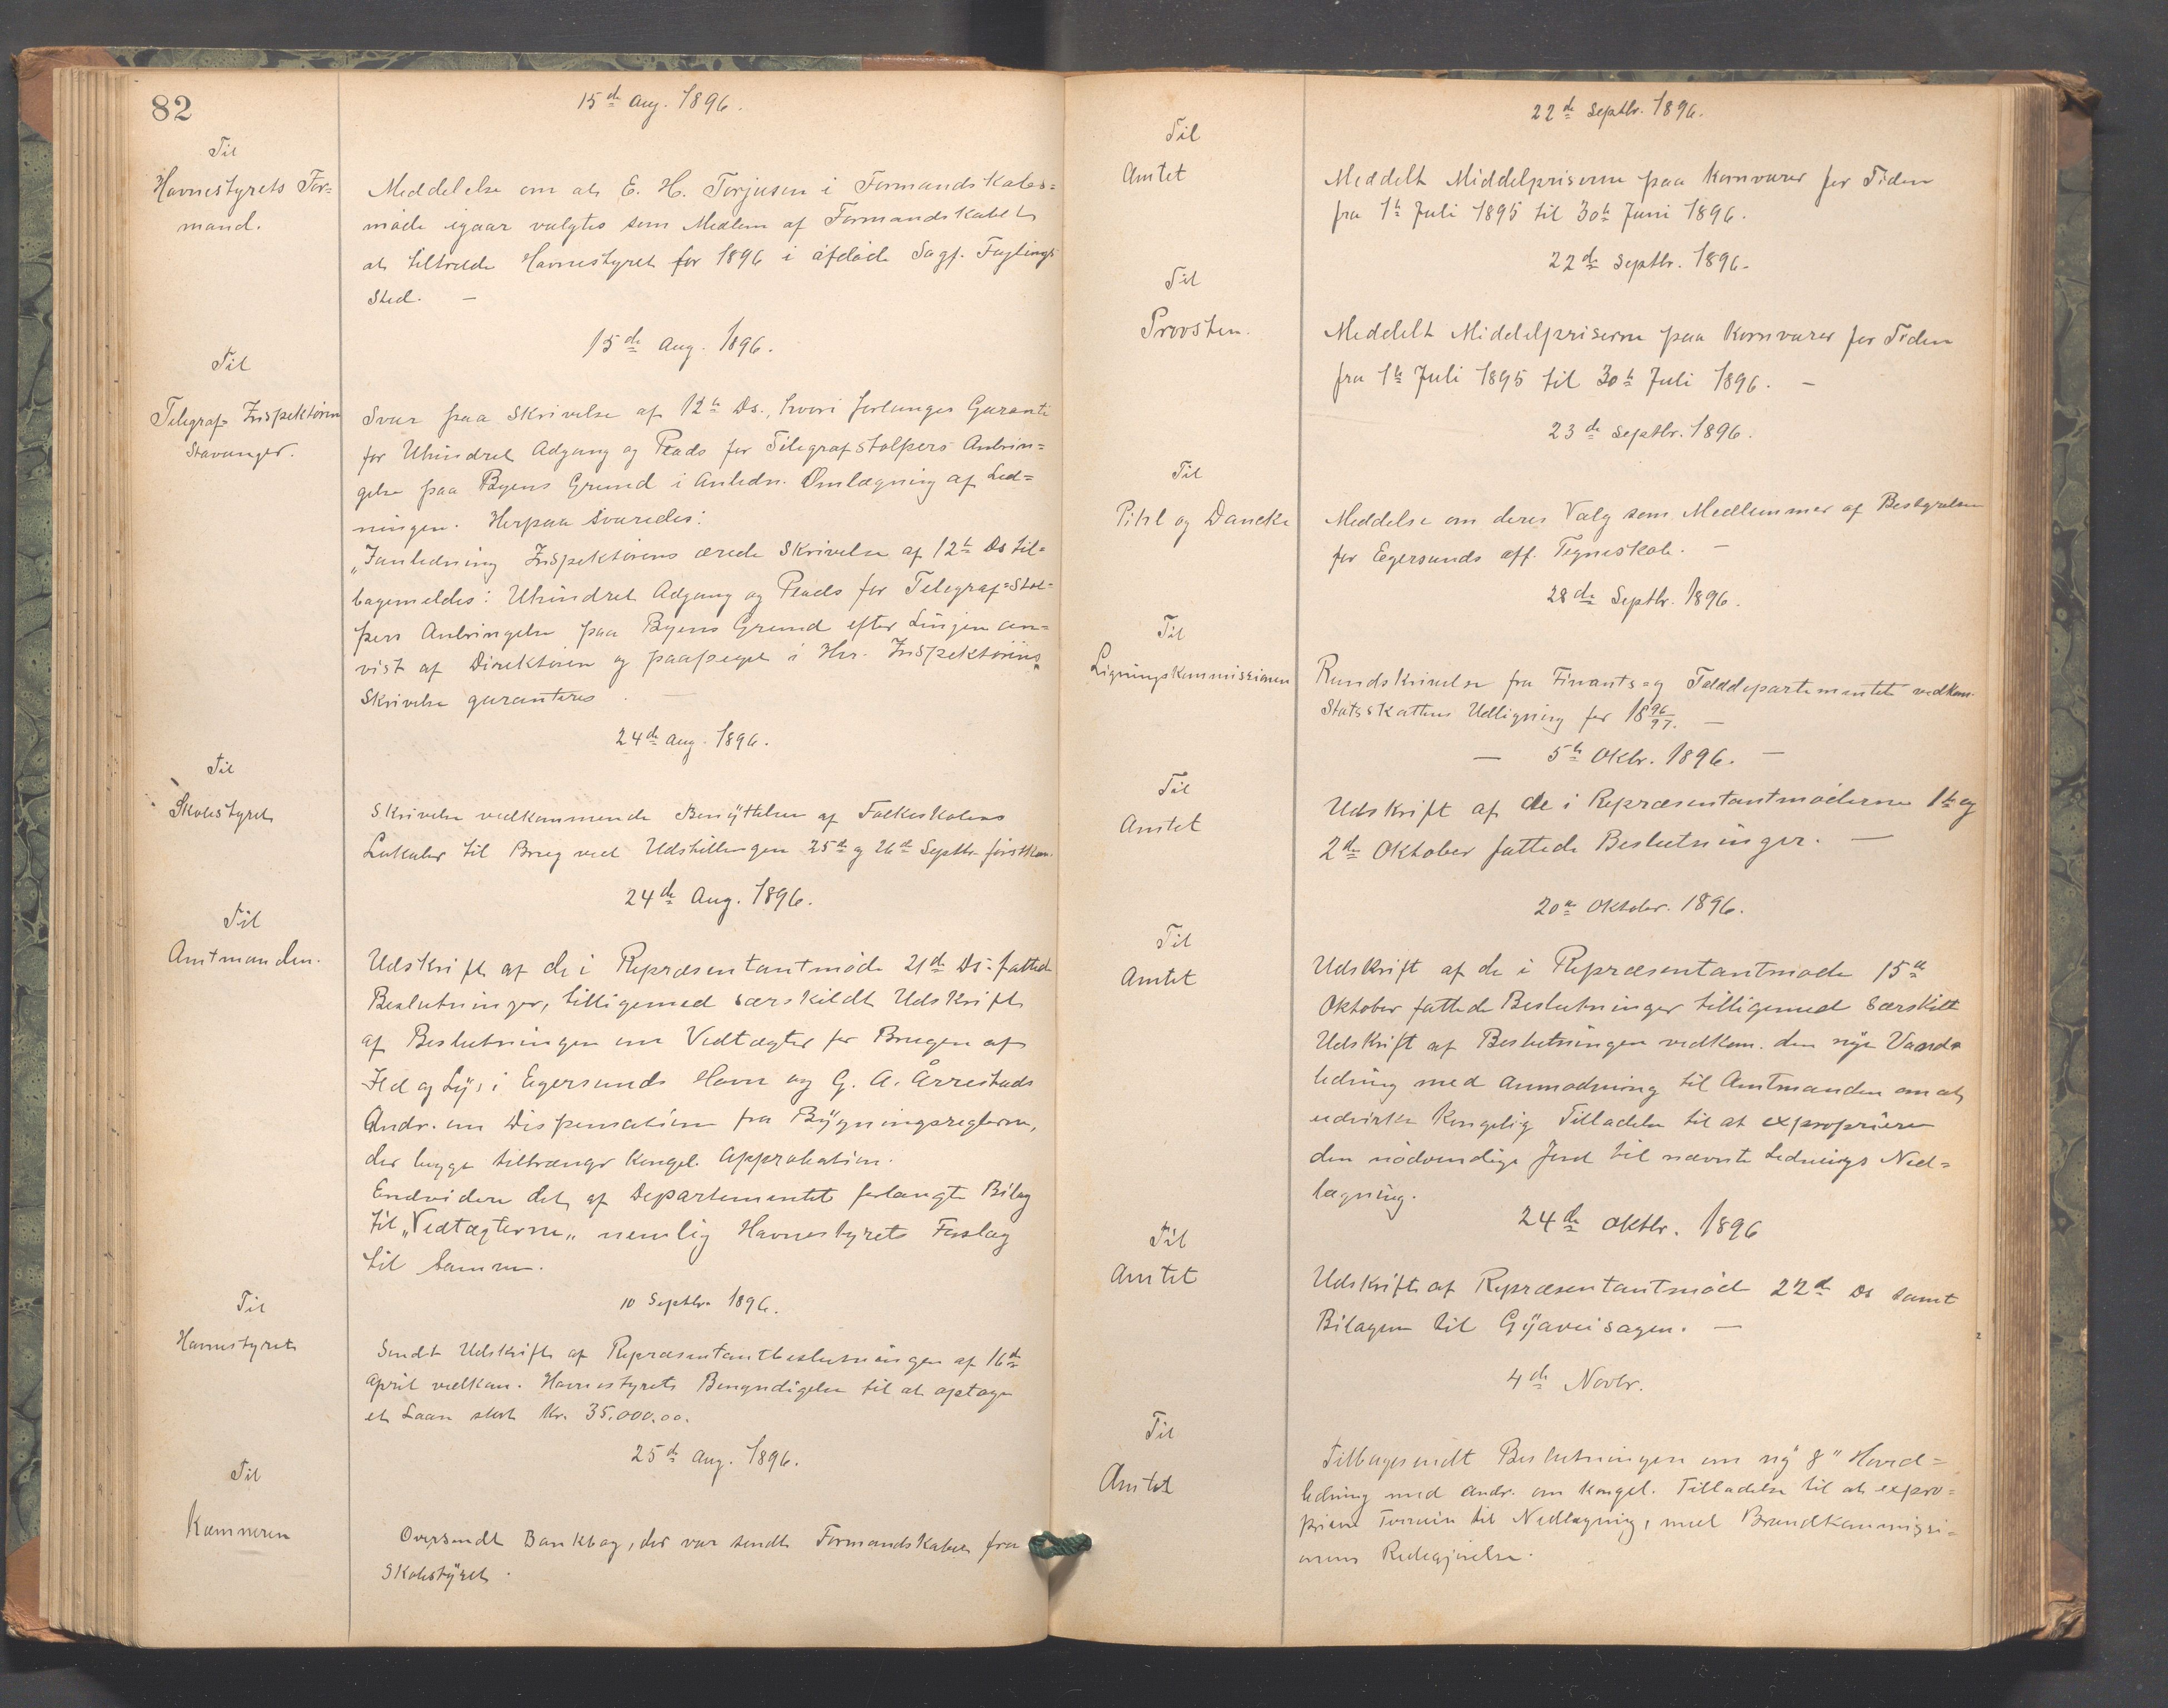 82
15de Aug. 1896.
Til
Havnestyrets For=
mand.
Meddelelse om at E. H. Torjusen i Formandskabs=
møde igaar valgtes som Medlem af Formandskabet
at tiltræde Havnestyret for 1896 i afdøde Sagf. Fuglings
Sted. —
15de Aug. 1896.
Til
Telegraf Inspektøren
Stavanger.
Svar paa Skrivelse af 12te Ds., hvori forlanges Garanti
for Uhindret Adgang og Plads for Telegrafstolpers Anbrin=
gelse paa Byens Grund i Anledn. Omlægning af Led=
ningen. Herpaa svaredes:
„I anledning Inspektørens ærede Skrivelse af 12te Ds til=
bagemeldes: Uhindret Adgang og Plads for Telegraf=Stol=
pers Anbringelse paa Byens Grund efter Linjen an=
vist af Direktøren og paapeget i Hr. Inspektørens
Skrivelse garanteres". —
24de Aug. 1896.
Til
Skolestyret
Skrivelse vedkommende Benyttelsen af Folkeskolens
Lokaler til Brug ved Udstillingen 25de og 26de Septbr. førstkom.
24de Aug. 1896.
Til
Amtmanden.
Udskrift af de i Repræsentantmøde 21de Ds. fattede
Beslutninger, tilligemed særskildt Udskrift
af Beslutningen om Vedtægter for Brugen af
Ild og Lys i Egersunds Havn og G. A. Årrestads
Andr. om Dispensation fra Bygningsreglerne,
der begge tiltrænger Kongel. Approbation.
Endvidere det af Departementet forlangte Bilag
til „Vedtægterne„ nemlig Havnestyrets Forslag
til samme.
10 Septbr. 1896.
Til
Havnestyret
Sendt Udskrift af Repræsentantbeslutningen af 16de
April vedkom. Havnestyrets Bemyndigelse til at optage
et Laan stort Kr. 35.000.00.
25de Aug. 1896.
Til
Kæmneren
Oversendt Bankbog, der var sendt Formandskabet fra
Skolestyret.
22de Septbr. 1896.
Til
Amtet
Meddelt Middelpriserne paa Kornvarer for Tiden
fra 1te Juli 1895 til 30te Juni 1896.
22de Septbr. 1896.
Til
Provsten.
Meddelt Middelpriserne paa Kornvarer for Tiden
fra 1te Juli 1895 til 30te Juli 1896. —
23de Septbr. 1896.
Til
Pihl og Dancke
Meddelse om deres Valg som Medlemmer af Bestyrelsen
for Egersunds off. Tegneskole. —
28de Septbr. 1896.
Til
Ligningskommissionen
Rundskrivelse fra Finants= og Tolddepartementet vedkom.
Statsskattens Udligning for 1896/97. —
— 5te Oktbr. 1896. —
Til
Amtet
Udskrift af de i Repræsentantmøderne 1te og
2de Oktober fattede Beslutninger. —
20de Oktober. 1896.
Til
Amtet
Udskrift af de i Repræsentantmøde 15de
Oktober fattede Beslutninger tilligemed særskilt
Udskrift af Beslutningen vedkom. den nye Vand=
ledning med Anmodning til Amtmanden om at
udvirke Kongelig Tilladelse til at expropriere
den nødvendige Jord til nævnte Lednings Ned=
lægning.
24de Oktbr. 1896
Til
Amtet
Udskrift af Repræsentantmøde 22de Ds samt
Bilagene til Gyaveisagen. —
4de Novbr.
Til
Amtet
Tilbagesendt Beslutningen om ny 8" Hoved=
ledning med Andr. om Kongel. Tilladelse til at expro=
priere Terrain til Nedlægning, med Brandkommissi=
onens Redegjørelse.